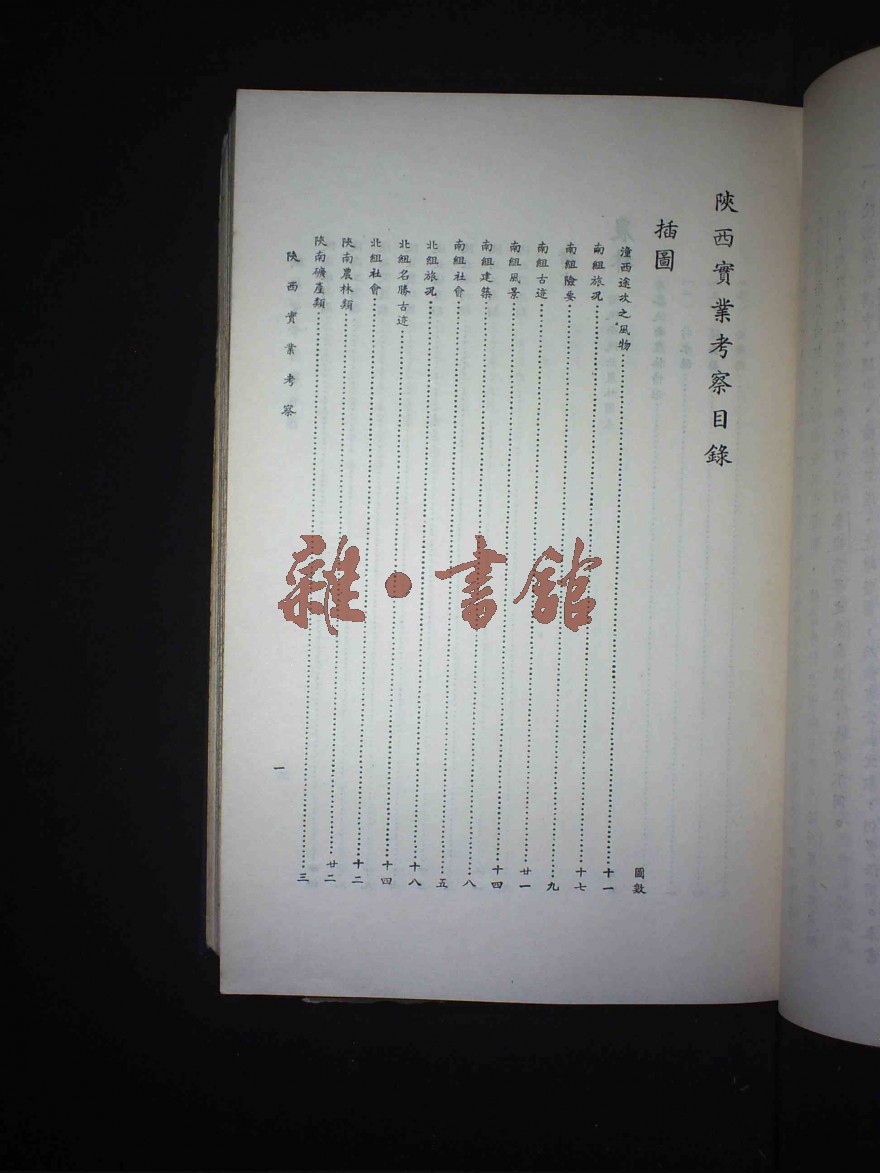 陝西實業考察目錄
插圖
圖數
潼西途次之風物……十一
南組旅況……十七
南組險要……九
南組古迹……廿一
南組風景……十四
南組建築……八
南組社會……五
北組旅況……十八
北組名勝古迹……十四
北組社會……十二
陝南農林類……廿二
陝南礦產類……三
陝西實業考察
一
雜·書館